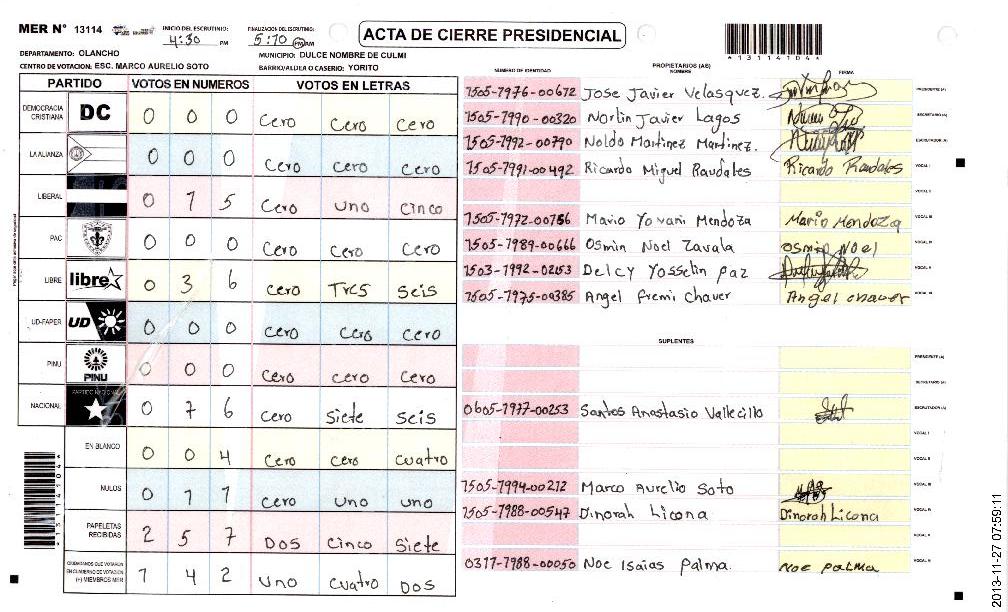 MER N° 13114
INICIO DEL ESCRUTINIO: 4:30 PM
FINALIZACION DEL ESCRUTINIO: 5:10 PM AM
ACTA DE CIERRE PRESIDENCIAL
*13114104*
DEPARTAMENTO: OLANCHO
MUNICIPIO: DULCE NOMBRE DE CULMI
CENTRO DE VOTACION: ESC. MARCO AURELIO SOTO
BARRIO/ALDEA O CASERIO: YORITO
PARTIDO VOTOS EN NUMEROS VOTOS EN LETRAS
DEMOCRACIA CRISTIANA DC 0 0 0 Cero Cero Cero
LA ALIANZA 0 0 0 Cero Cero Cero
LIBERAL 0 1 5 Cero uno Cinco
PAC 0 0 0 Cero Cero Cero
LIBRE libre 0 3 6 cero Tres seis
UD-FAPER UD 0 0 0 cero Cero cero
PINU PINU 0 0 0 Cero cero Cero
NACIONAL PARTIDO NACIONAL 0 7 6 Cero Siete seis
EN BLANCO 0 0 4 Cero Cero cuatro
NULOS 0 1 1 Cero uno uno
PAPELETAS RECIBIDAS 2 5 7 DOS Cinco Siete
CIUDADANOS QUE VOTARON EN CUADERNO DE VOTACION (+) MIEMBROS MER 1 4 2 uno cuatro Dos
*13114104*
NUMERO DE IDENTIDAD PROPIETARIOS (AS) NOMBRE FIRMA
1505-1976-00672 Jose Javier Velasquez. PRESIDENTE (A)
1505-1990-00320 Norlin Javier Lagos SECRETARIO (A)
1505-1992-00790 Noldo Martinez Martinez. ESCRUTADOR (A)
1505-1991-00492 Ricardo Miguel Raudales Ricardo Raudales VOCAL I
VOCAL II
1505-1972-00756 Mario Yovani Mendoza Mario Mendoza VOCAL III
1505-1989-00666 Osmin Noel Zavala osmin Noel VOCAL IV
1503-1992-02153 Delcy Yosselin paz VOCAL V
1505-1975-00385 Angel Fremi Chaver Angel chaver VOCAL VI
SUPLENTES
PRESIDENTE (A)
SECRETARIO (A)
0605-1977-00253 Santos Anastasio Vallecillo ESCRUTADOR (A)
VOCAL I
VOCAL II
1505-1994-00212 Marco Aurelio Soto VOCAL III
1505-1988-00547 Dinorah Licona Dinorah Licona VOCAL IV
VOCAL V
0317-1988-00050 Noe Isaias Palma. Noe palma VOCAL VI
2013-11-27 07:59:11